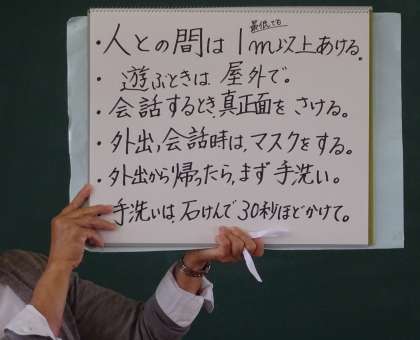 最低でも
・人との間は1m以上あける。
・遊ぶときは屋外で。
・会話するとき、真正面をさける。
・外出、会話時は、マスクをする。
・外出から帰ったら、まず手洗い。
・手洗いは、石けんで30秒ほどかけて。